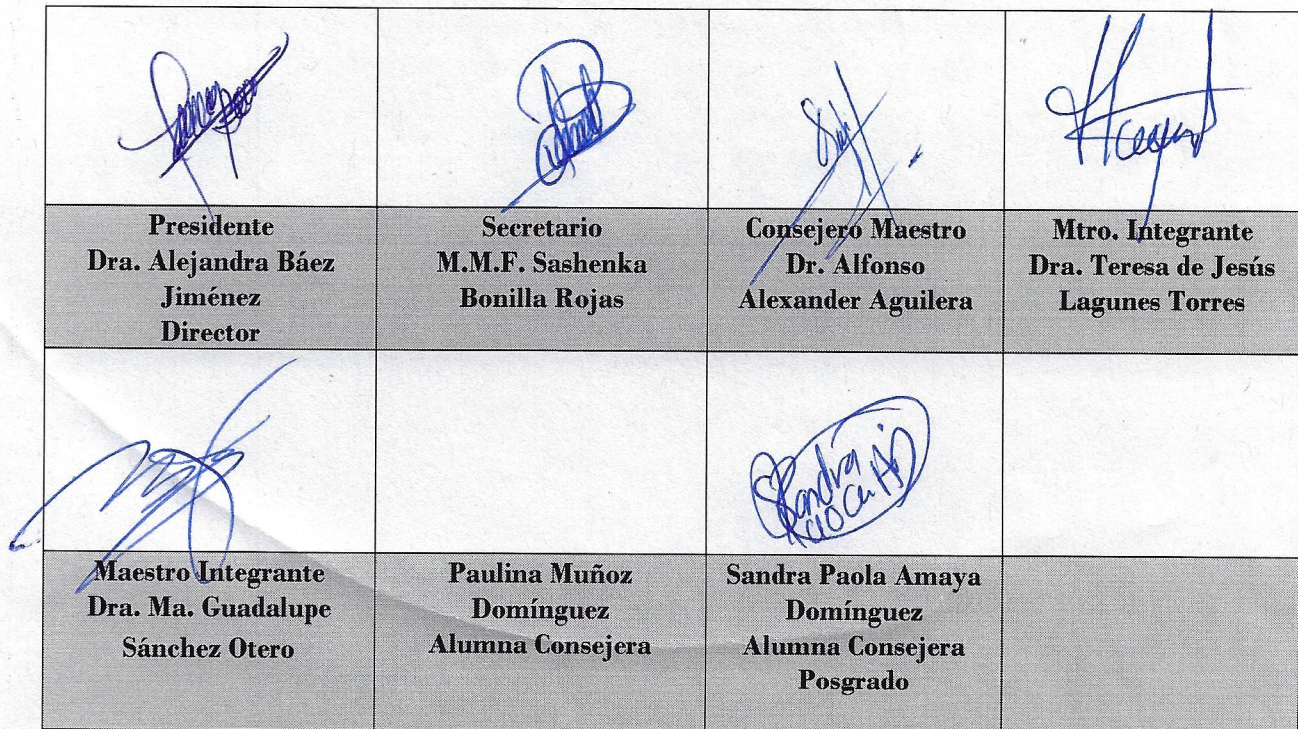 Presidente
Dra. Alejandra Báez
Jiménez
Director
Secretario
M.M.F. Sashenka
Bonilla Rojas
Consejero Maestro
Dr. Alfonso
Alexander Aguilera
Mtro. Integrante
Dra. Teresa de Jesús
Lagunes Torres
Sandra
Maestro Integrante
Dra. Ma. Guadalupe
Sánchez Otero
Paulina Muñoz
Domínguez
Alumna Consejera
Sandra Paola Amaya
Domínguez
Alumna Consejera
Posgrado